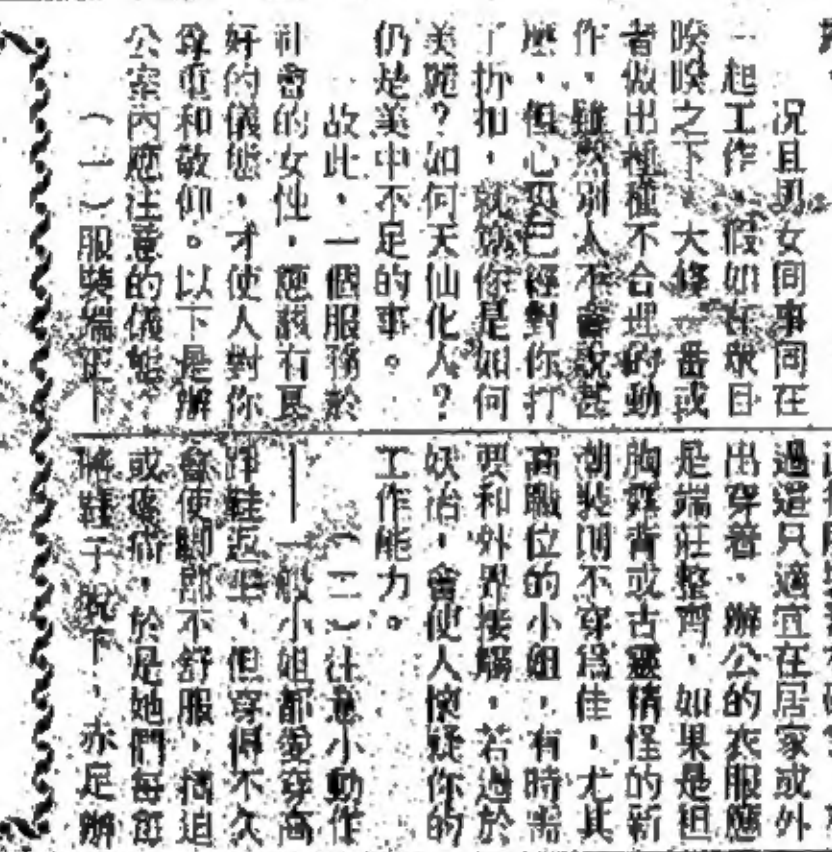 況且男女同事同在
一起工作,假如在眾目
睽睽之下,大修一番或
者做出種種不合理的動
作,雖然別人不會說甚
麼,但心裏已經對你打
了折扣,就算你是如何
美麗?如何天仙化人?
仍是美中不足的事。
故此,一個服務於
社會的女性,應該有良
好的儀態,才使人對你
尊重和敬仰。以下是辦
公室內應注意的儀態:
(一)服裝端正—
過這只適宜在居家或外
出穿着,辦公的衣服應
是端莊整齊,如果是袒
胸露背或古靈精怪的新
潮裝則不穿爲佳,尤其
高職位的小姐,有時需
要和外界接觸,若過於
妖冶,會使人懷疑你的
工作能力。
(二)注意小動作
—一般小姐都愛穿高
踭鞋返工,但穿得不久
會使腳部不舒服,擠迫
或疼痛,於是她們每每
將鞋子脫下,赤足辦